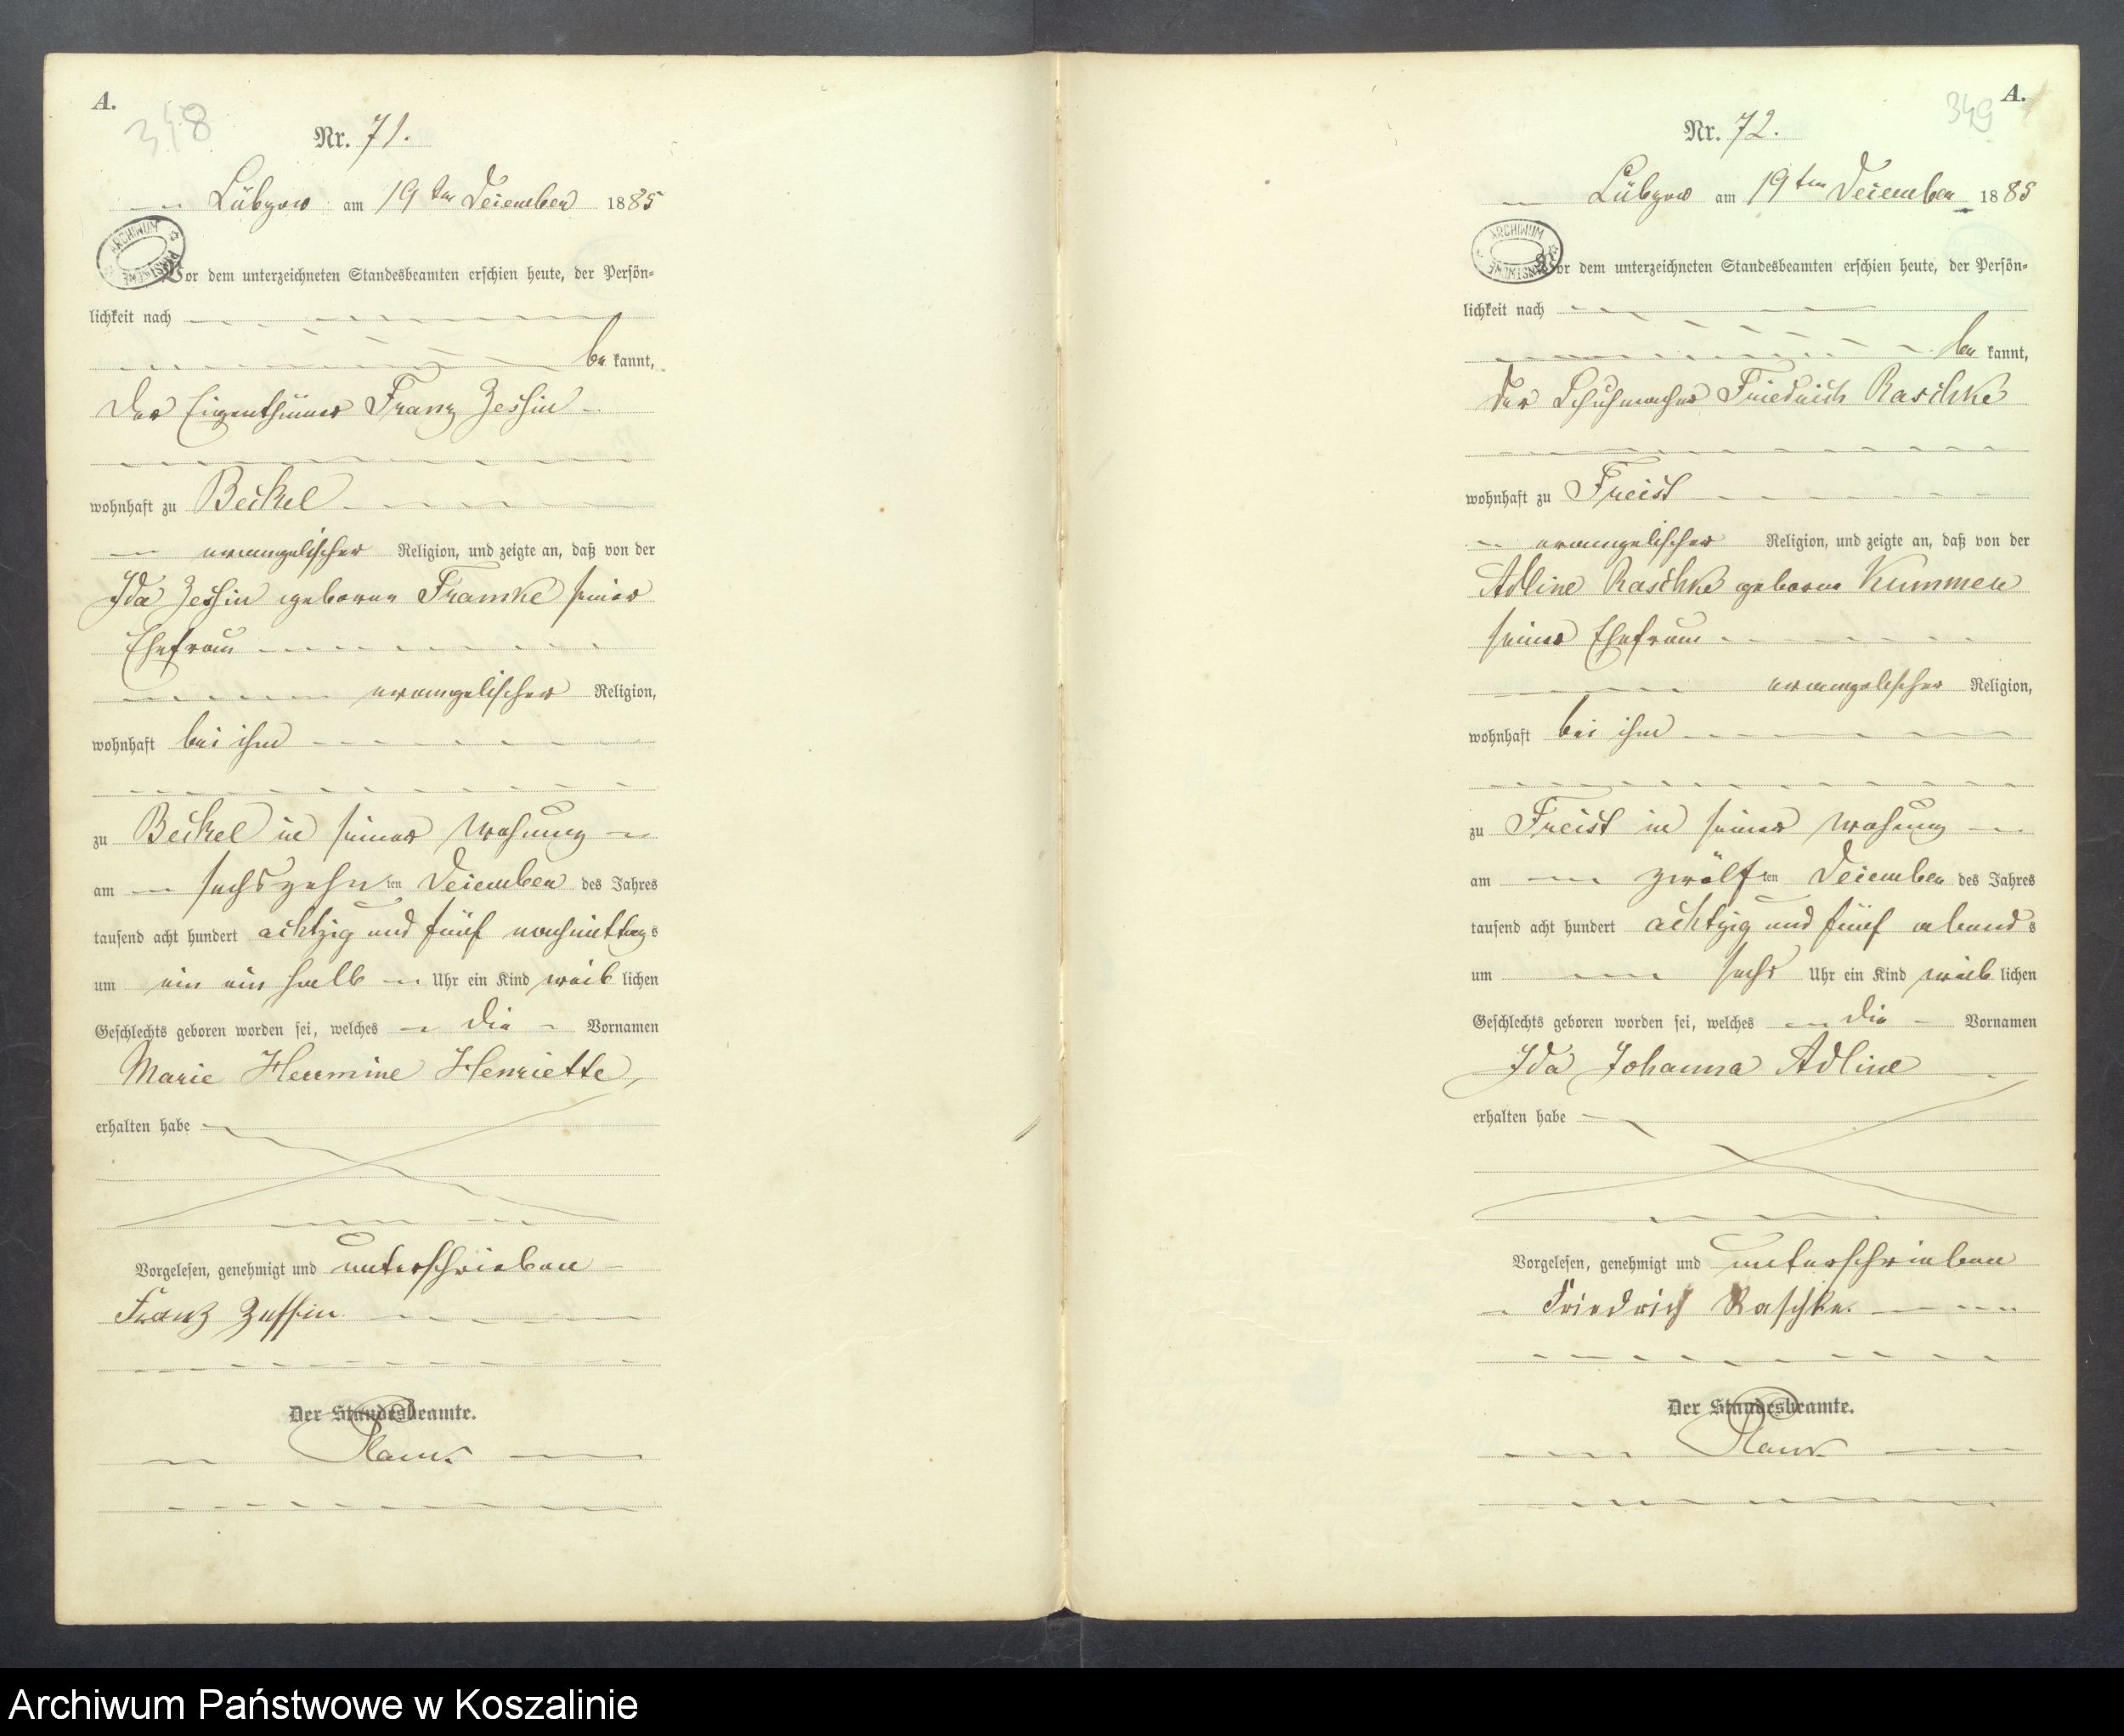 A.
348
Nr. 71.
Lübzow am 19ten Dezember 1885
ARCHIWUM PAŃSTWOWE
Vor dem unterzeichneten Standesbeamten erschien heute, der Persön-
lichkeit nach
be kannt,
der Eigenthümer Franz Zessin
wohnhaft zu Beckel
evangelischer Religion, und zeigte an, daß von der
Ida Zessin geborene Framke seiner
Ehefrau
evangelischer Religion,
wohnhaft bei ihm
zu Beckel in seiner Wohnung
am sechszehn ten Dezember des Jahres
tausend acht hundert achtzig und fünf nachmittags
um ein ein halb Uhr ein Kind weib lichen
Geschlechts geboren worden sei, welches die Vornamen
Marie Hermine Henriette,
erhalten habe
Vorgelesen, genehmigt und unterschrieben
Franz Zessin
Der Standesbeamte.
A.
349
Nr. 72.
Lübzow am 19ten Dezember 1885
ARCHIWUM PAŃSTWOWE
Vor dem unterzeichneten Standesbeamten erschien heute, der Persön-
lichkeit nach
be kannt,
der Schuhmacher Friedrich Raschke
wohnhaft zu Freist
evangelischer Religion, und zeigte an, daß von der
Adline Raschke geborne Kummer
seiner Ehefrau
evangelischer Religion,
wohnhaft bei ihm
zu Freist in seiner Wohung
am zwölf ten Dezember des Jahres
tausend acht hundert achtzig und fünf abends
um sechs Uhr ein Kind weib lichen
Geschlechts geboren worden sei, welches die Vornamen
Ida Johanna Adline
erhalten habe
Vorgelesen, genehmigt und unterschrieben
Friedrich Raschke.
Der Standesbeamte.
Archiwum Państwowe w Koszalinie